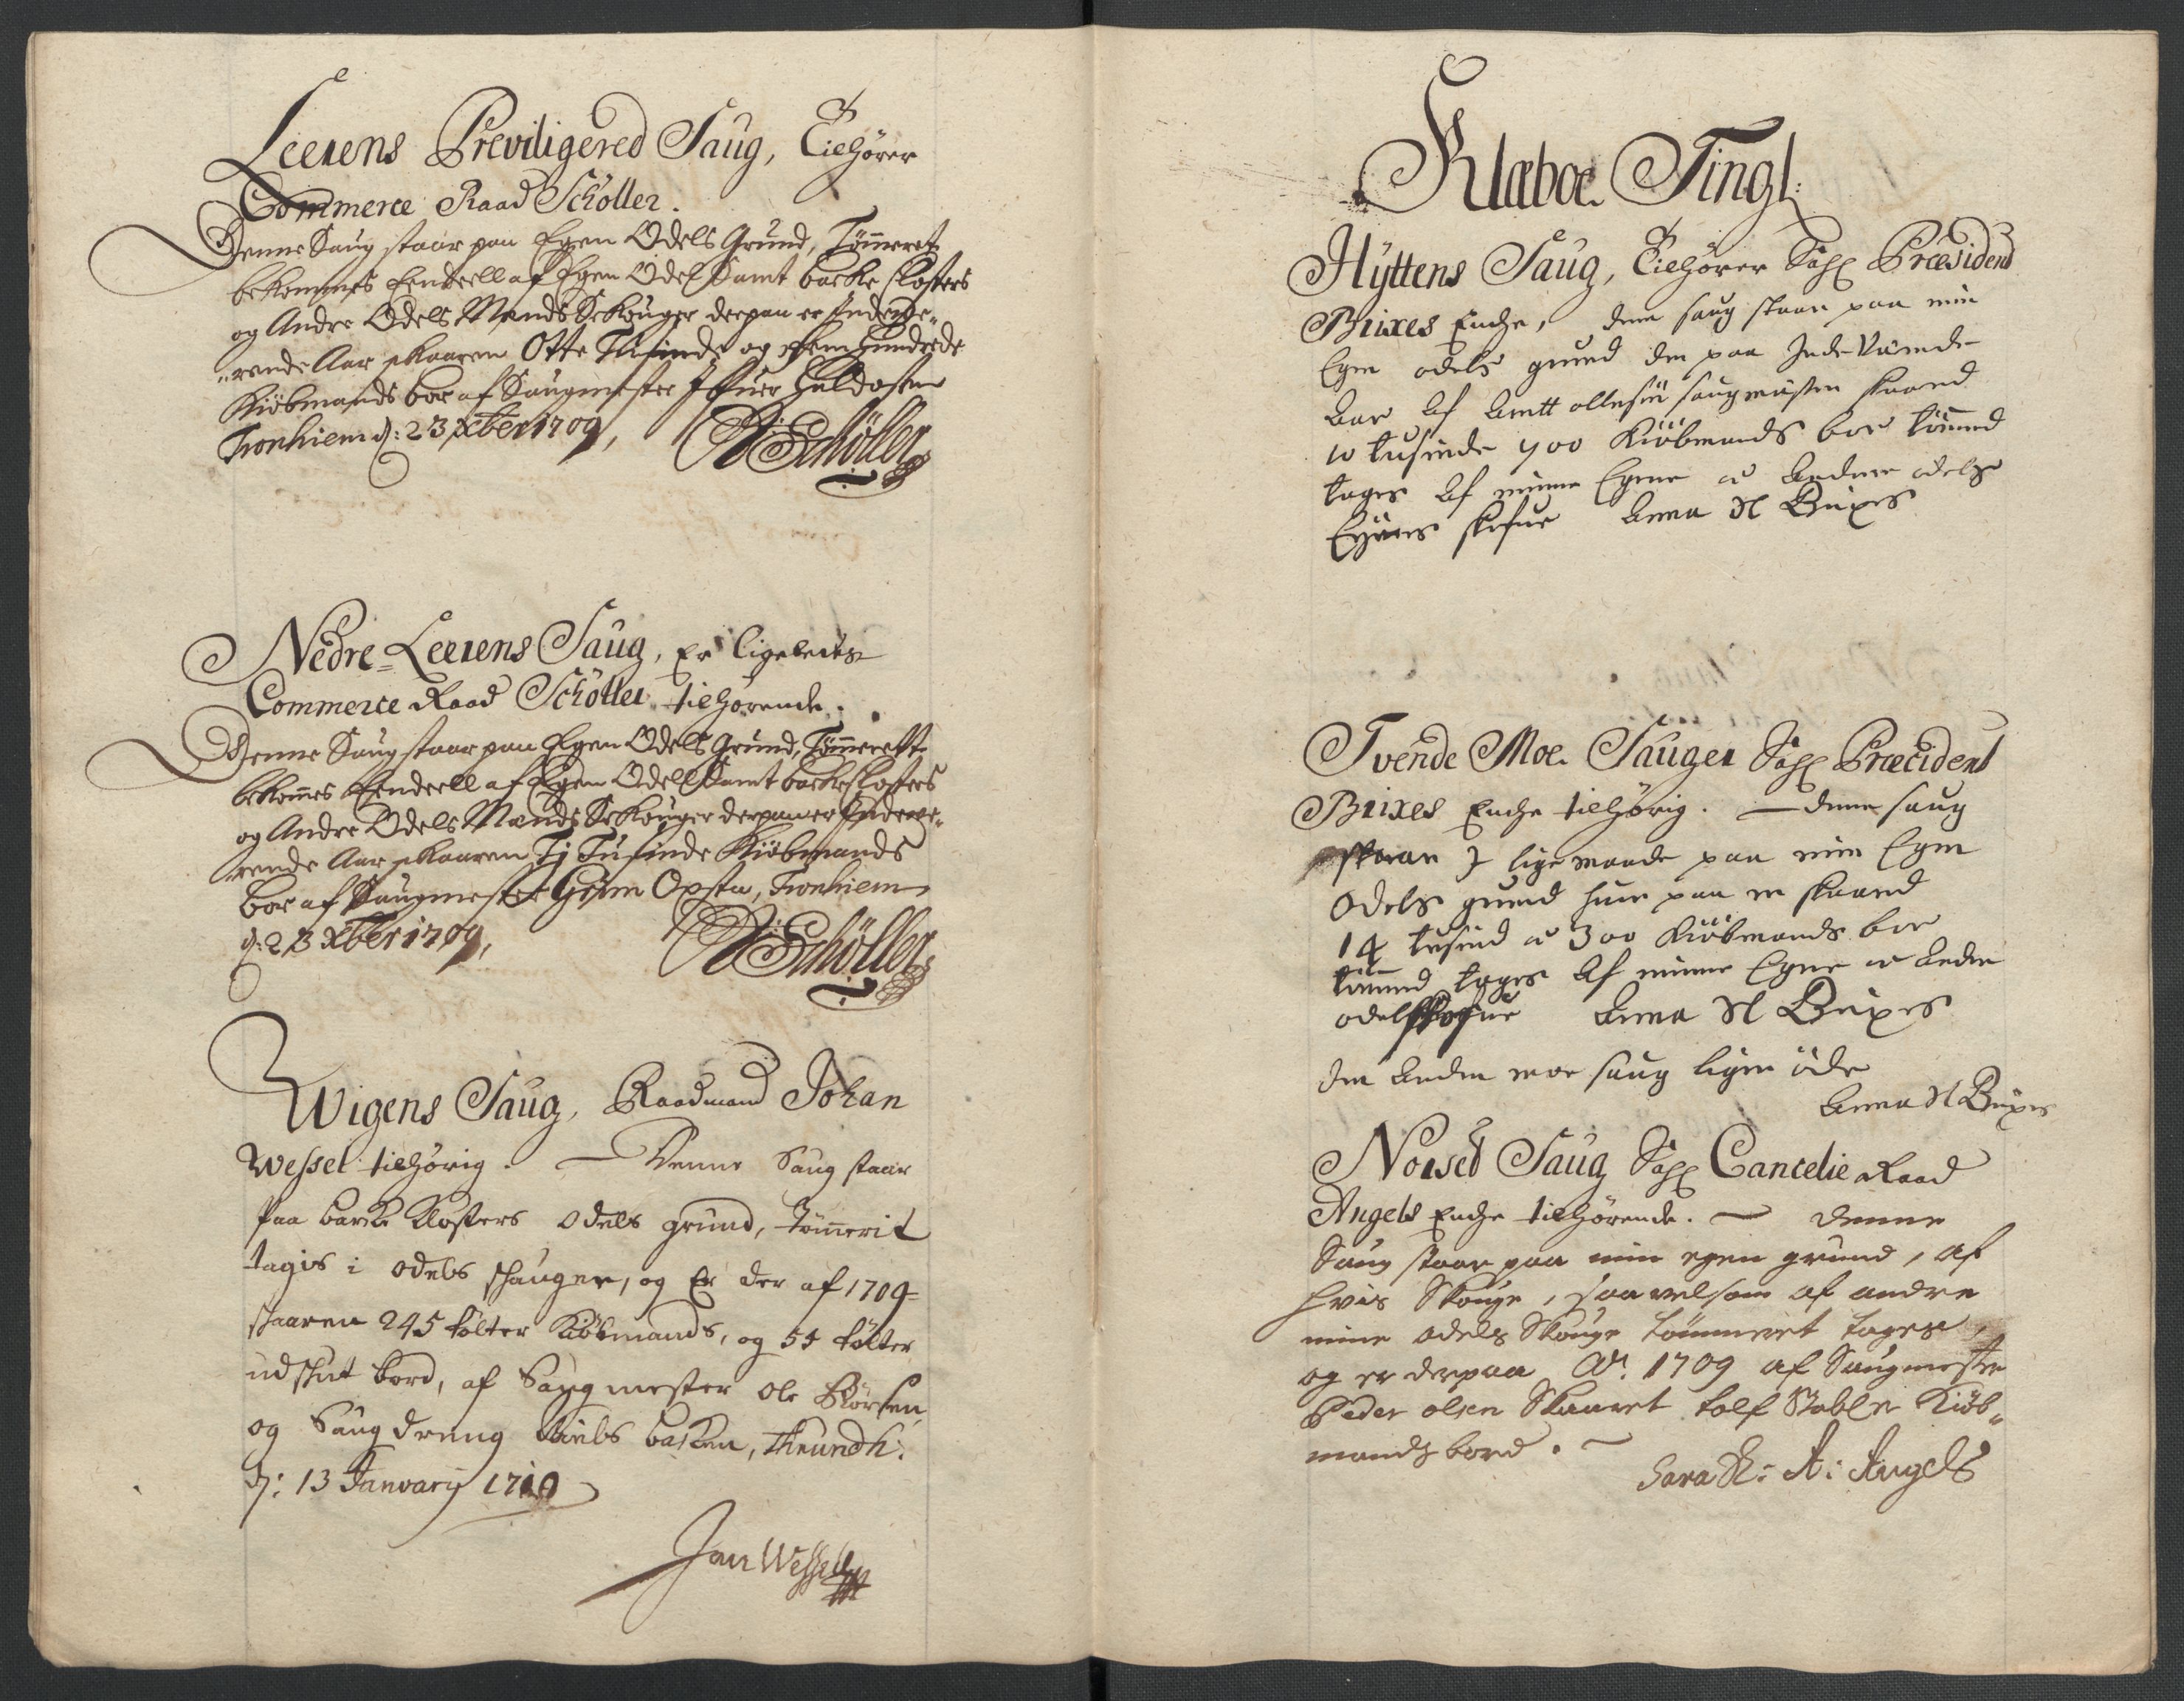 Leerens Previligered Saug, Tilhører
Commerce Raad Schøller.
Denne Saug staar paa Egen Odels Grund, Tømmeret
bekommes Eendeell af Egen Odel Samt backe Closters
og Andre Odels Mænds Skouger derpaa er Indewæ-
rende Aar skaaren Otte Tusinde og Fem Hundrede
Kiøbmands bor af Saugmester Iffuer Haldosen
Tronhiem d: 23 Xber 1709,
Schøller
Nedre-Leerens Saug, Er ligeledes
Commerce Raad Schøller tilhørende.
Denne Saug staar paa Egen Odels Grund, Tømmerett
bekomes Eendeell af Egen Odell Samt backe Closters
og Andre Odels Mænds Skouger derpaa er Indewæ-
rende Aar skaaren Tj Tusinde Kiøbmands
bor af Saugmester Opsta, Tronhiem
d: 23 Xber 1709,
Schøller
Wigens Saug, Raadmand Johan
Wessel tilhørig. — Denne Saug staar
paa backe Klosters odels grund, tømerit
tagis i odels skauger, og Er der af 1709
skaaren 245 tolter Kiøbmands, og 55 tolter
udskut bord, af Saugmester Ole
og Saugdreng, Thrundh:
d: 13 January 1710
Jan Wessell
Klæboe Tingl:
Hyttens Saug, Tilhører Sahl Præsident
Brixes Enche, denne saug staar paa min
Egen odels grund der paa Inde Værende
aar af arntt ollesen saugmester skaared
10 tusinde 700 Kiøbmands bor tømmed
tages af minne Egene oc andere odels
Eyeres skofue Anna Sl Brixes
Tvende Moe Sauger Sahl Præcident
Brixes Enche tilhørig. — denne saug
staar I lige maade paa min Egen
Odels grund huor paa er skaared
14 tusind oc 300 Kiøbmands bor
tømmed tages af minne Egene oc anden
odelsskofue Anna Sl Brixes
den anden moe saug liger öde
Anna Sl Brixes
Norsed Saug Sahl Cancelie Raad
Angels Enche tilhørende. — denne
Saug staar paa min egen grund, af
hvis Skouge, saavelsom af andre
mine odels Skouge tømmeret tages,
og er derpaa Ao. 1709 af Saugmester
Peder olsen Skaaret tolf Stabler Kiøb-
mands bord. —
Sara Sl: A: Angels